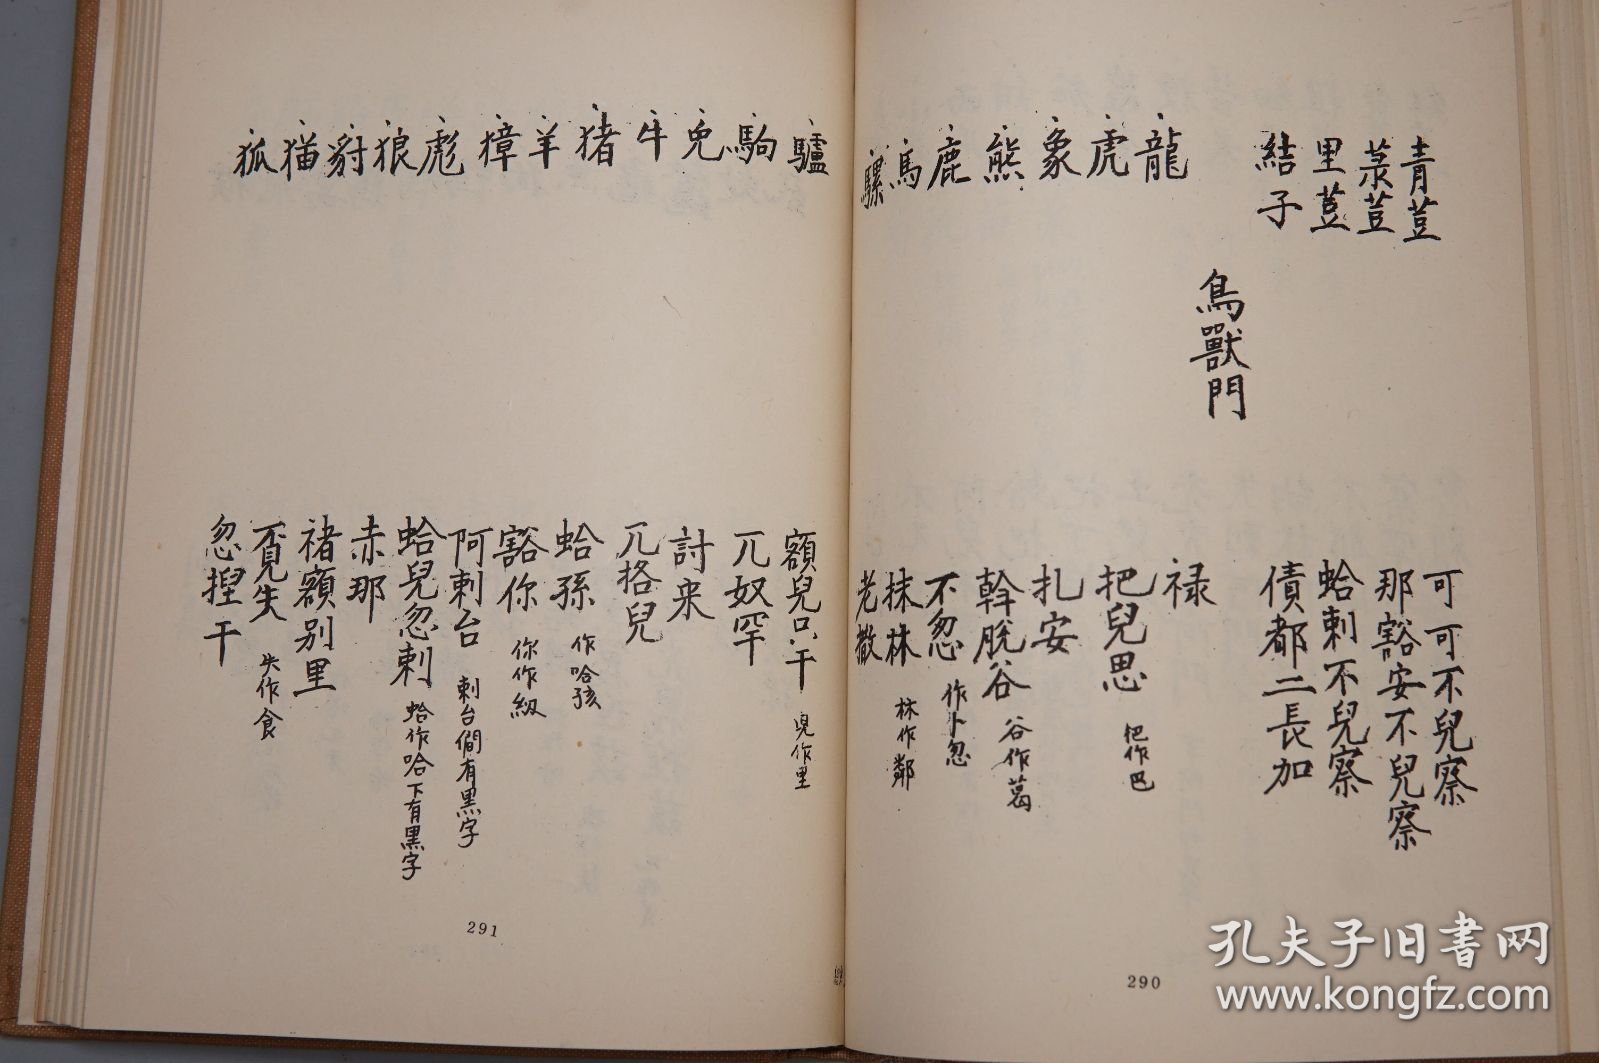 青荳
菉荳
里荳
結子
鳥獸門
龍
虎
象
熊
鹿
馬
騾
可可不兒察
那豁安不兒察
蛤剌不兒察
債都二長加
祿
把兒思 把作巴
扎安
斡脫谷 谷作葛
不忽 作卜忽
抹林 林作鄰
老撒
290
驢
駒
兔
牛
猪
羊
獐
彪
狼
豺
猫
狐
額兒只干 兒作里
兀奴罕
討来
兀格兒
蛤孫 作哈孩
豁你 你作級
阿剌台 剌台間有黑字
蛤兒忽剌 蛤作哈下有黑字
赤那
褚額别里
覔失 失作食
忽捏干
291
孔夫子旧書网
www.kongfz.com